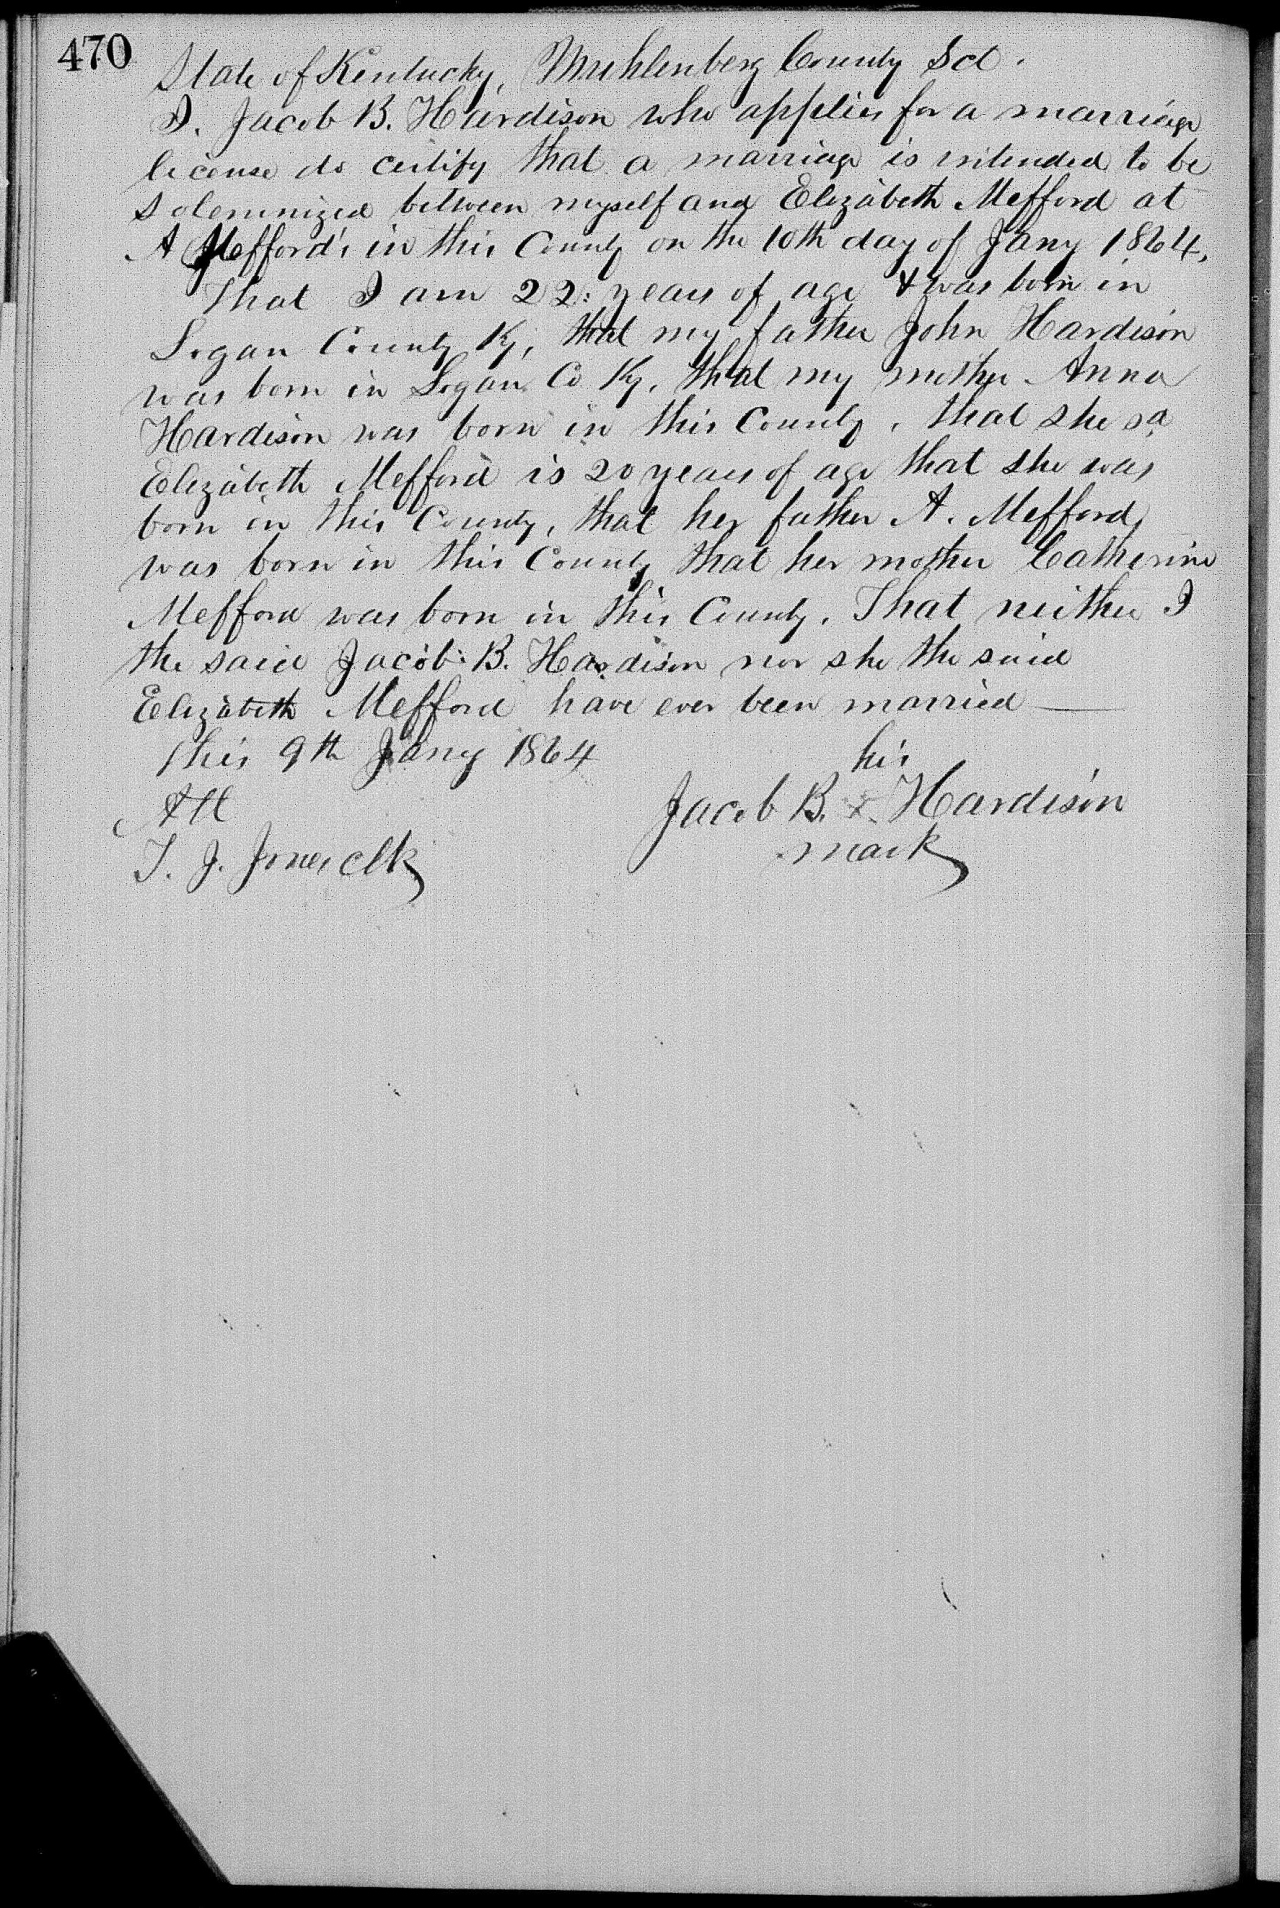 470
State of Kentucky, Muhlenberg County Sct.
I. Jacob B. Hardison who applies for a marriage
license do certify that a marriage is intended to be
Solemnized between myself and Elizabeth Mefford at
A Mefford's in this County on the 10th day of Jany 1864,
That I am 22 years of age & was born in
Logan County Ky, that my father John Hardison
was born in Logan Co Ky. that my mother Anna
Hardison was born in this County, that she sd
Elizabeth Mefford is 20 years of age that she was
born in this County, that her father A. Mefford,
was born in this County that her mother Catherine
Mefford was born in this County. That neither I
the said Jacob B. Hardison nor she the said
Elizabeth Mefford have ever been married
This 9th Jany 1864
his
Att
Jacob B. x Hardison
mark
T. J. Jones clk